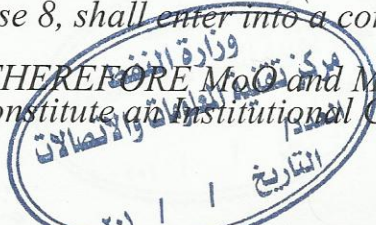 se 8, shall enter into a co
HEREFORE MoO and M
onstitute an Institutional C
وزارة النفط
مركز تقنية المعلومات والاتصالات
العدد/
التاريخ / / ٢٠١